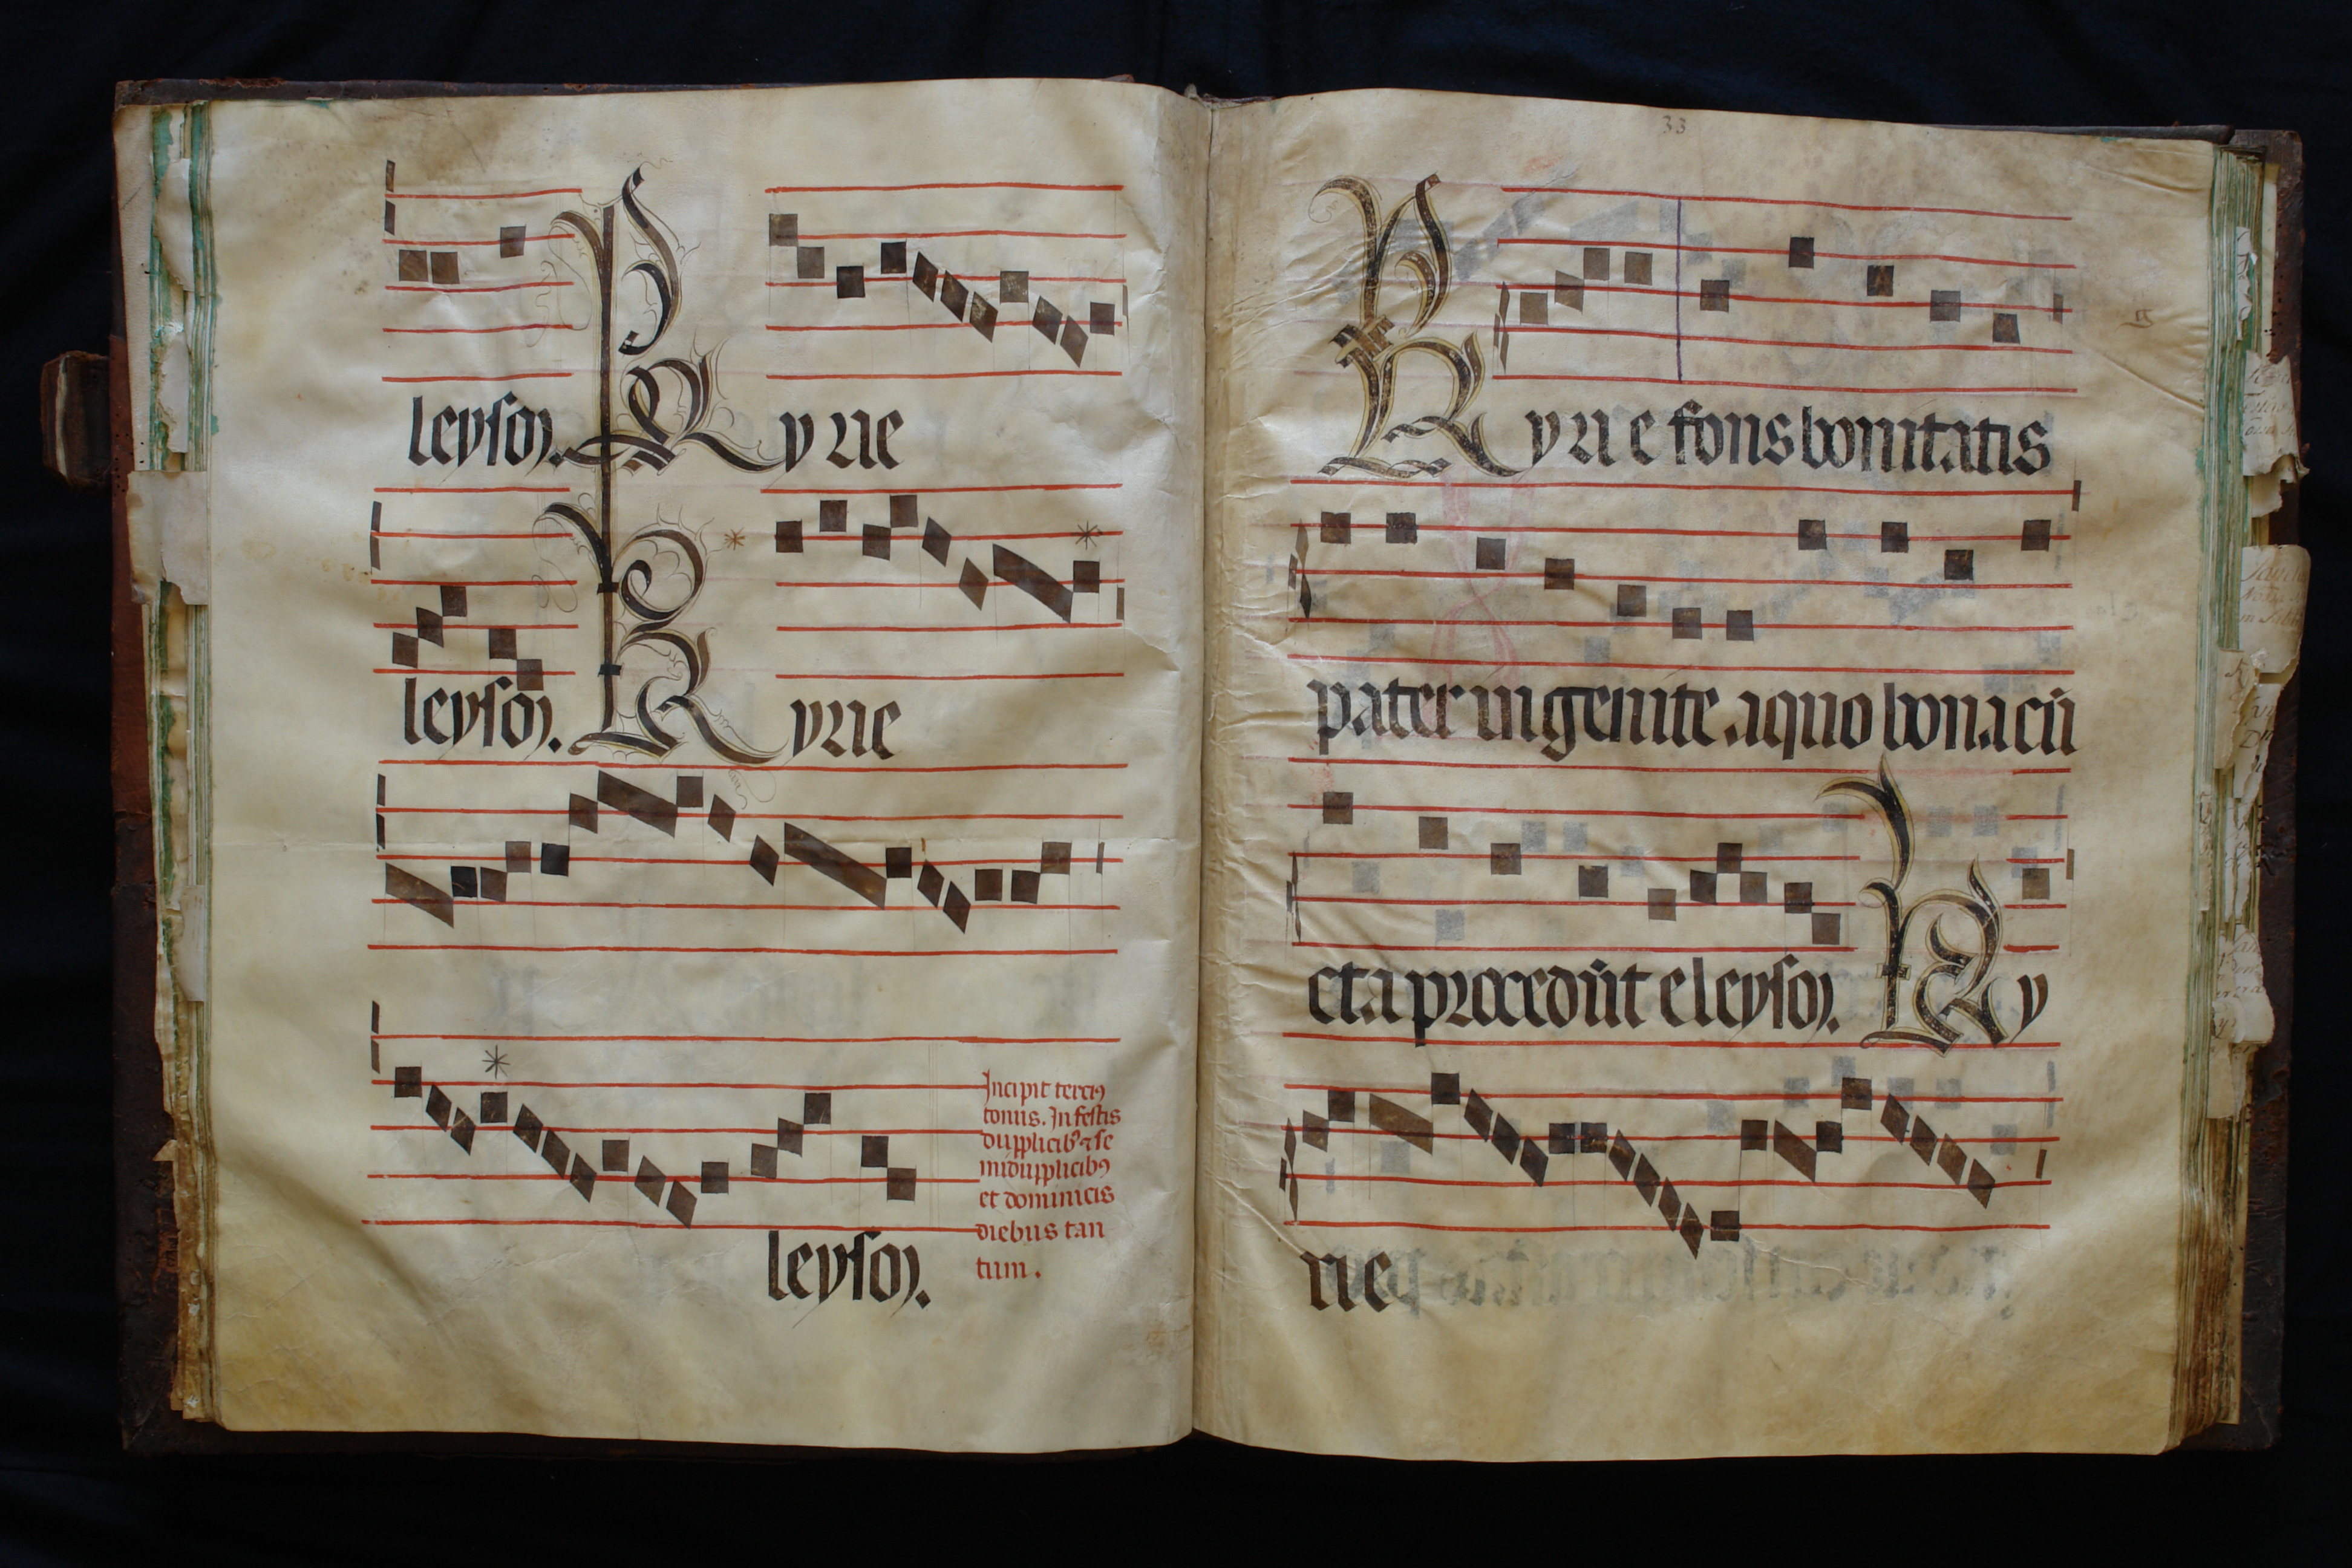 leyson. Kyrie
leyson. Kyrie
leyson.
Incipit terciꝰ
tonus. In festis
dupplicibꝰ ⁊ se
midupplicibꝰ
et dominicis
diebus tan
tum.
33
Kyrie fons bonitatis
pater ingenite a quo bona cū
cta procedūt eleyson. Ky
rie